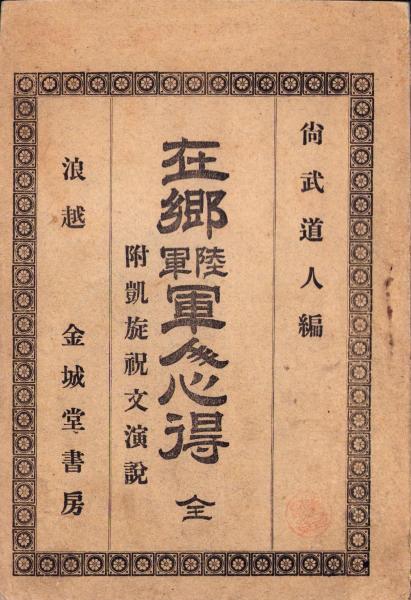 尙武道人編
在鄕陸軍軍人心得 全
附凱旋祝文演說
浪越 金城堂書房